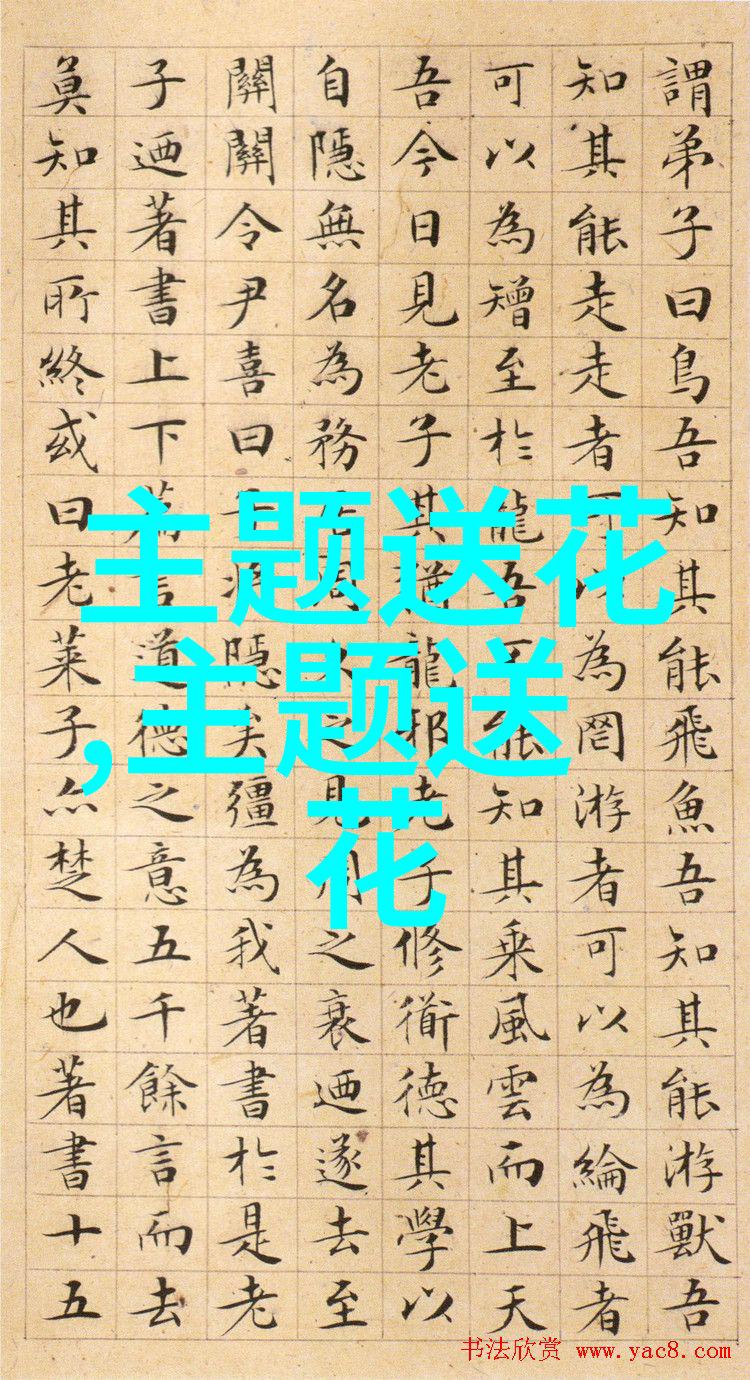 謂弟子曰鳥吾知其能飛魚吾知其能游獸吾
知其能走走者可以為罔游者可以為綸飛者
可以為矰至於龍吾不能知其乘風雲而上天
吾今日見老子其猶龍邪老子修衜德其學以
自隱無名為務居周久之見周之衰迺遂去至
關關令尹喜曰子將隱矣彊為我著書於是老
子迺著書上下篇言道德之意五千餘言而去
莫知其所終或曰老萊子亦楚人也著書十五
主题送花
,主题送
花
书法欣赏 www.yac8.com